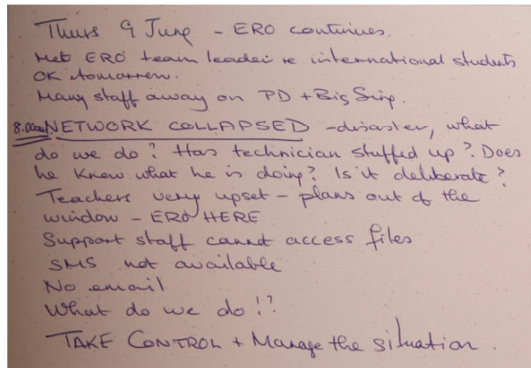 Thurs 9 June - ERO continues.
Met ERO team leader re international students
OK tomorrow.
Many staff away on PD + Big Sing.
8.00am NETWORK COLLAPSED - disaster, what
do we do? Has technician stuffed up? Does
he know what he is doing? Is it deliberate?
Teachers very upset - plans out of the
window - ERO HERE
Support staff cannot access files
SMS not available
No email
What do we do!?
TAKE CONTROL + Manage the situation.